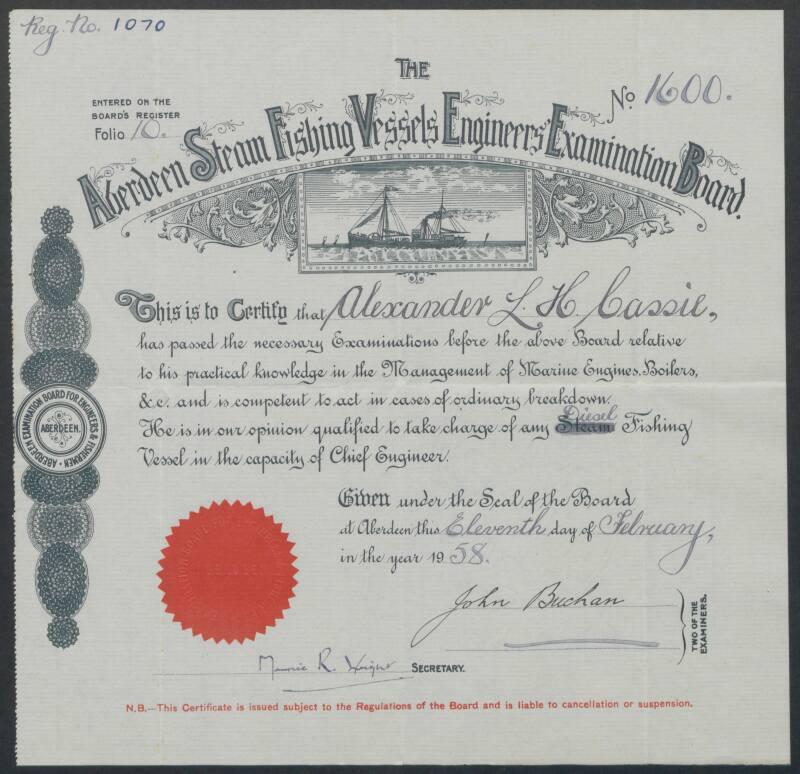 Reg. No. 1070
THE
ENTERED ON THE
BOARD'S REGISTER
Folio 10.
No 1600.
Aberdeen Steam Fishing Vessels Engineers' Examination Board.
This is to Certify that Alexander L. H. Cassie,
has passed the necessary Examinations before the above Board relative
to his practical knowledge in the Management of Marine Engines, Boilers,
&c. and is competent to act in cases of ordinary breakdown.
Diesel
He is in our opinion qualified to take charge of any Steam Fishing
Vessel in the capacity of Chief Engineer.
EXAMINATION BOARD FOR ENGINEERS & FISHERMEN • ABERDEEN •
ABERDEEN.
Given under the Seal of the Board
at Aberdeen this Eleventh day of February,
in the year 1958.
John Buchan
TWO OF THE
EXAMINERS.
R. SECRETARY.
N.B.—This Certificate is issued subject to the Regulations of the Board and is liable to cancellation or suspension.